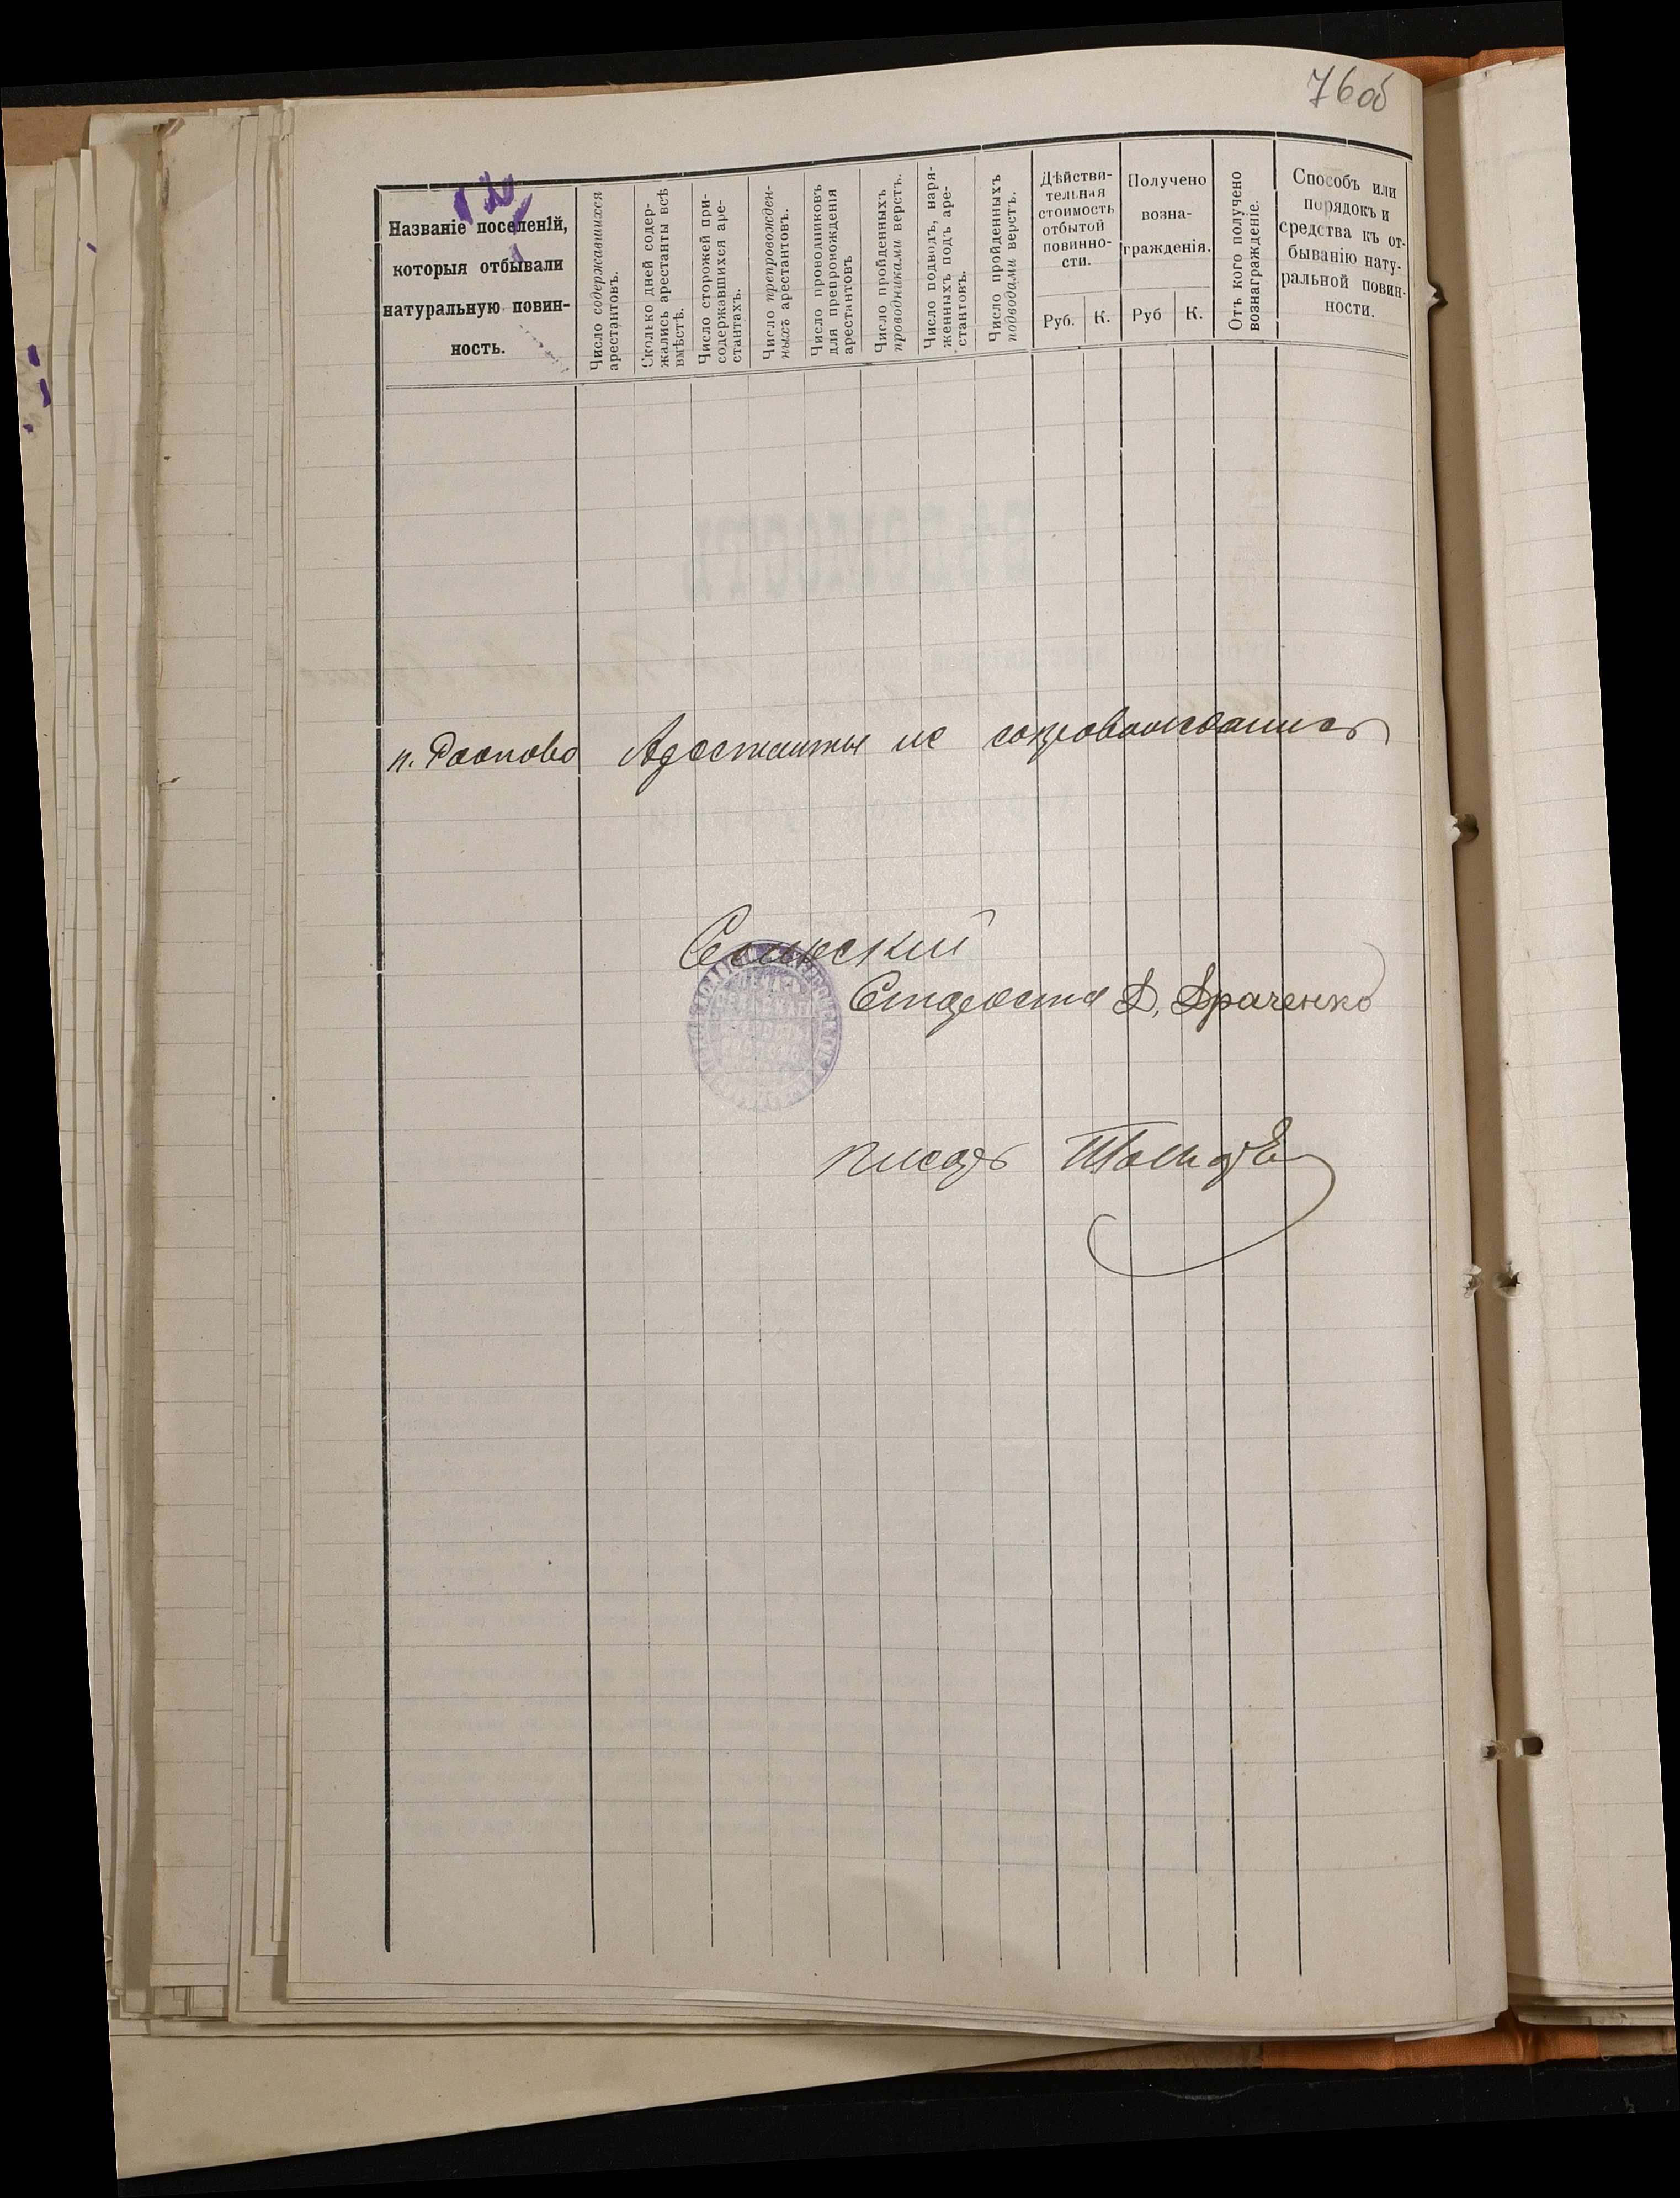 76 об
Названіе поселеній,
которыя отбывали
натуральную повин-
ность.
Число содержавшихся
арестантовъ.
Сколько дней содер-
жались арестанты всѣ
вмѣстѣ.
Число сторожей при
содержавшихся аре-
стантахъ.
Число препровожден-
ныхъ арестантовъ.
Число проводниковъ
для препровожденія
арестантовъ
Число пройденныхъ
проводниками верстъ.
Число подводъ, наря-
женныхъ подъ аре-
стантовъ.
Число пройденныхъ
подводами верстъ.
Дѣйстви-
тельная
стоимость
отбытой
повинно-
сти.
Руб. К.
Получено
возна-
гражденія.
Руб К.
Отъ кого получено
вознагражденіе.
Способъ или
порядокъ и
средства къ от-
быванію нату-
ральной повин-
ности.
ВѢДОМОСТЬ
Арестанты не сопровождались
Сельский
Староста Д. Драченко
писарь